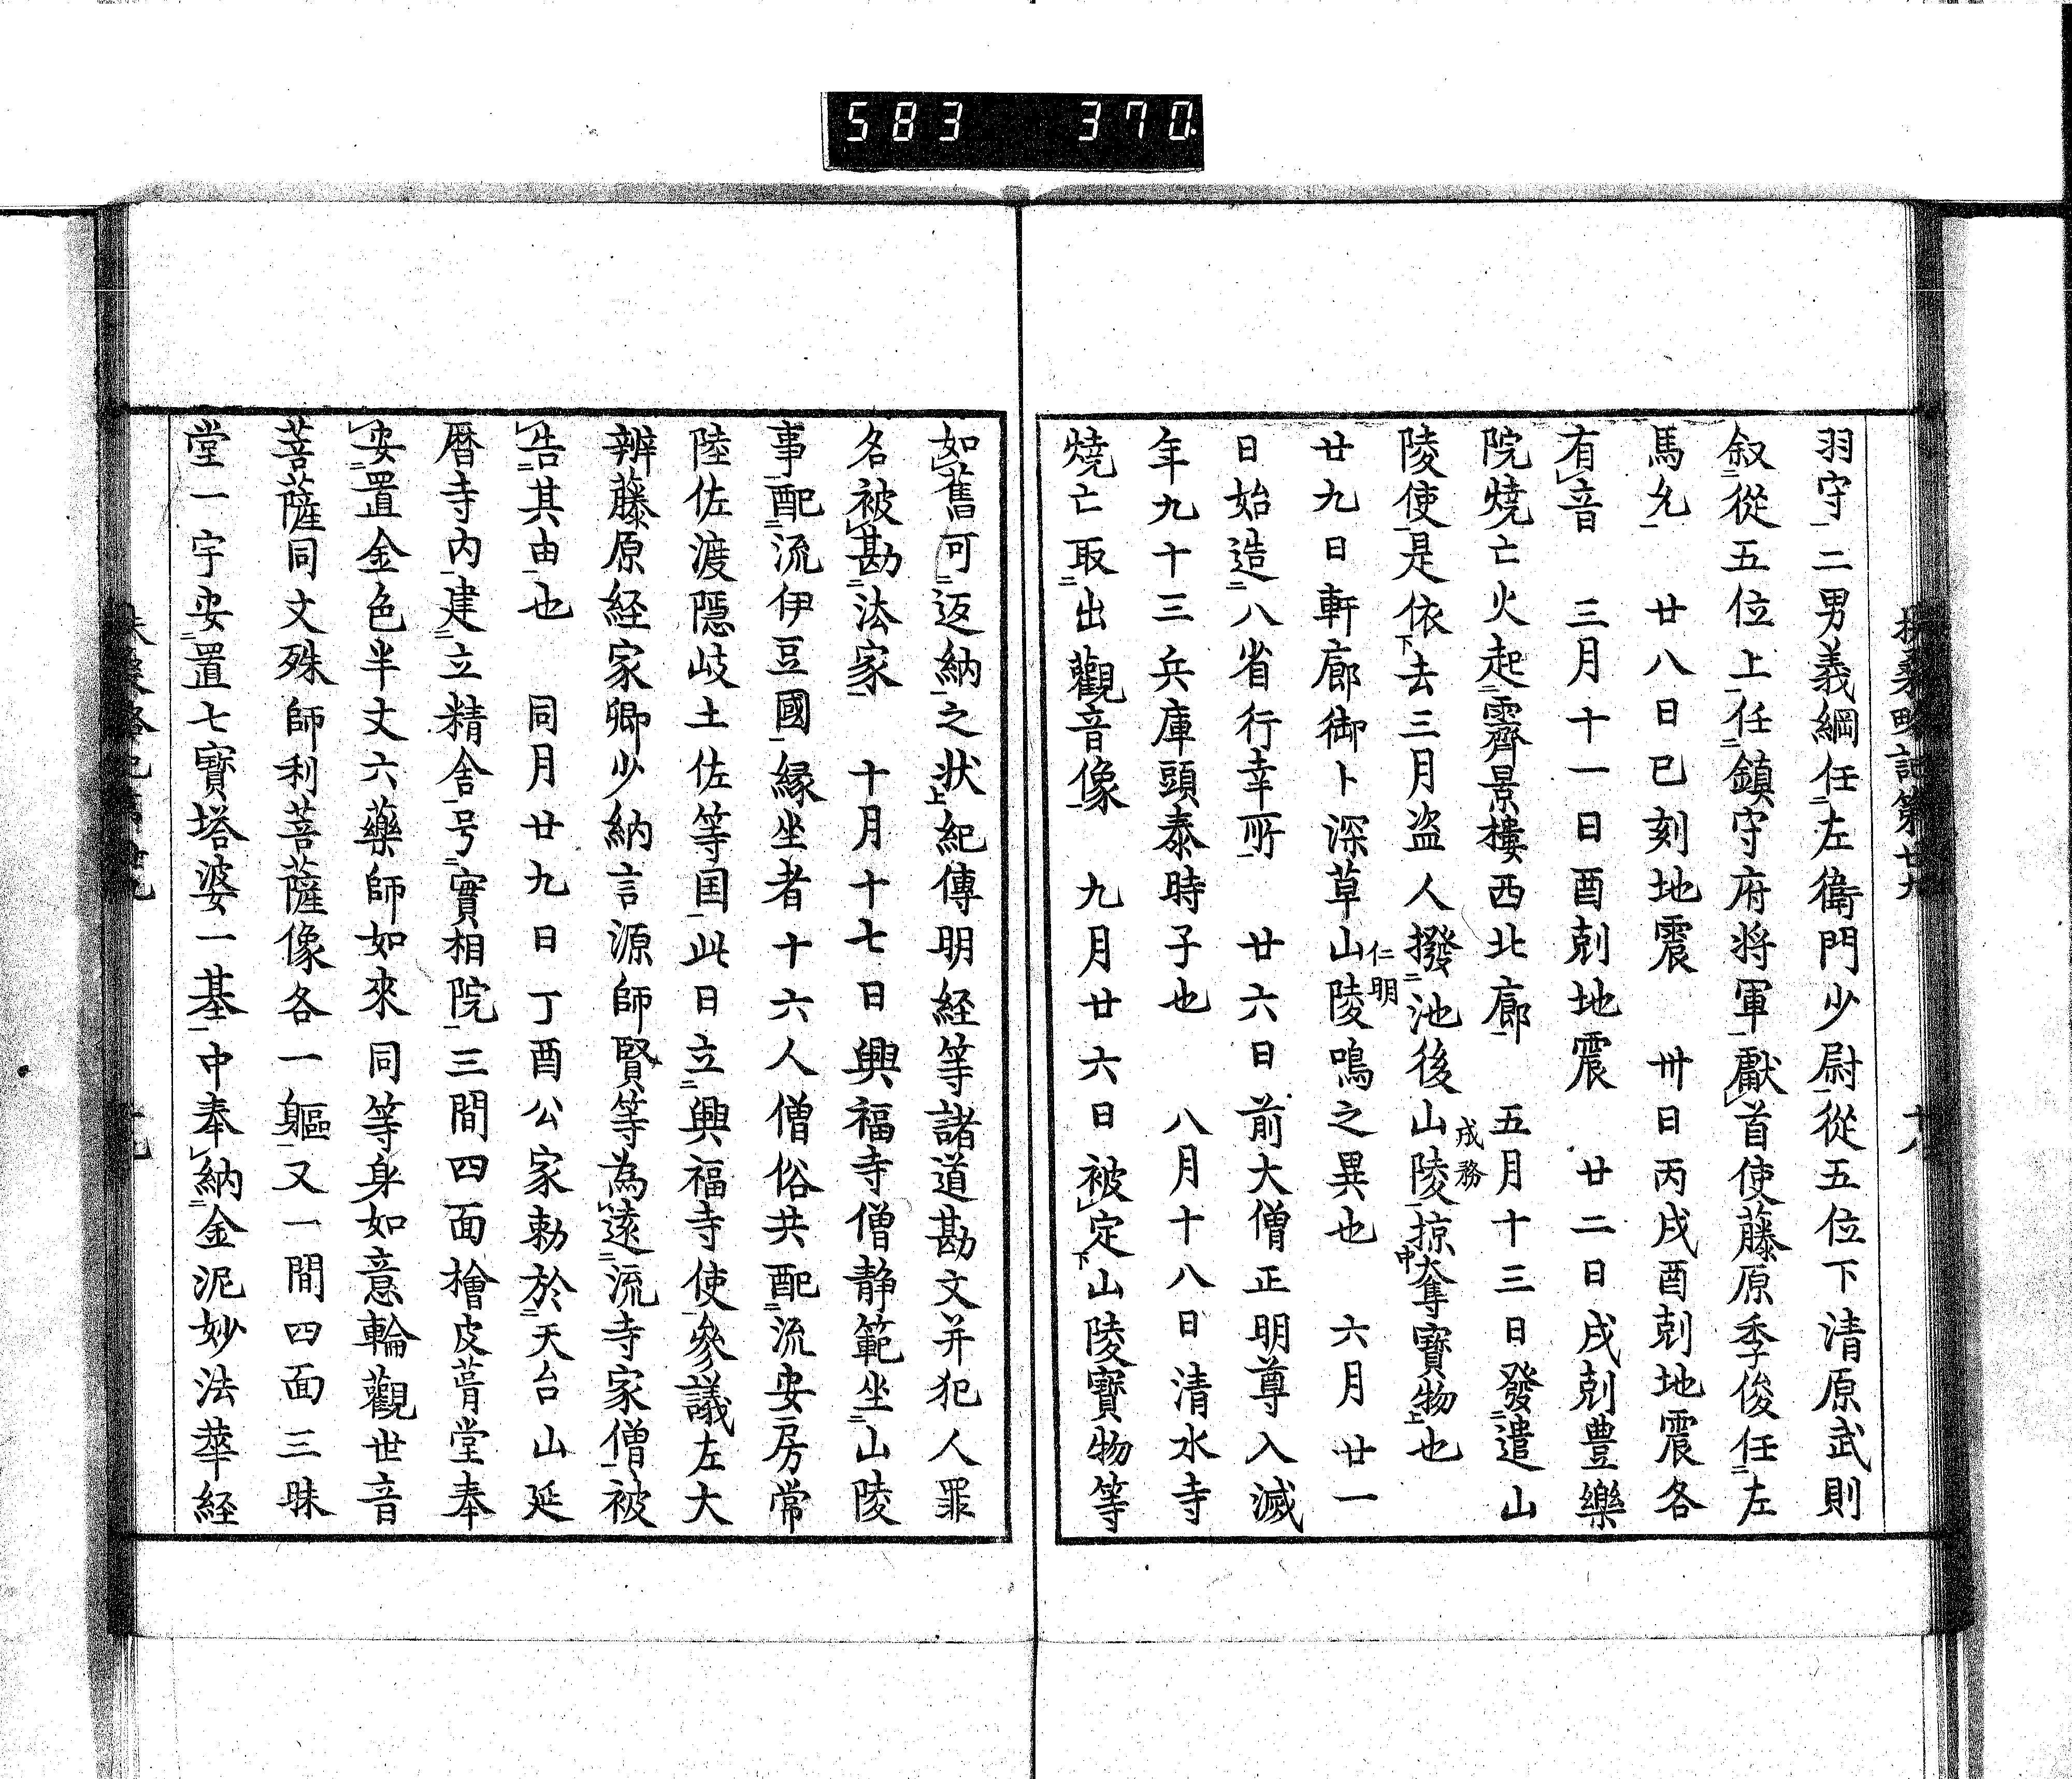 583 370
扶桑略記第廿九 十八
羽守二男義綱任左衞門少尉從五位下清原武則
叙從五位上任鎮守府将軍獻首使藤原季俊任左
馬允 廿八日巳刻地震 卅日丙戌酉剋地震各
有音 三月十一日酉剋地震 廿二日戌剋豊樂
院燒亡火起霽景樓西北廊 五月十三日發遣山
陵使是依去三月盗人撥池後山陵掠奪寶物也
成務
廿九日軒廊御卜深草山陵鳴之異也 六月廿一
仁明
日始造八省行幸所 廿六日前大僧正明尊入滅
年九十三兵庫頭泰時子也 八月十八日清水寺
燒亡取出觀音像 九月廿六日被定山陵寶物等
如舊可返納之状紀傳明経等諸道勘文并犯人罪
名被勘法家 十月十七日興福寺僧静範坐山陵
事配流伊豆國縁坐者十六人僧俗共配流安房常
陸佐渡隱岐土佐等国此日立興福寺使參議左大
辨藤原経家卿少納言源師賢等為遠流寺家僧被
告其由也 同月廿九日丁酉公家勅於天台山延
暦寺内建立精舎号實相院三間四面檜皮葺堂奉
安置金色半丈六藥師如來同等身如意輪觀世音
菩薩同文殊師利菩薩像各一軀又一間四面三昧
堂一宇安置七寶塔婆一基中奉納金泥妙法華経